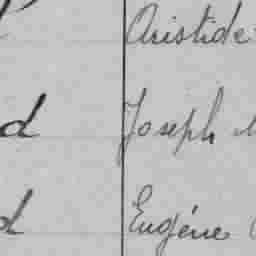 Aristide
d Joseph
d Eugéne